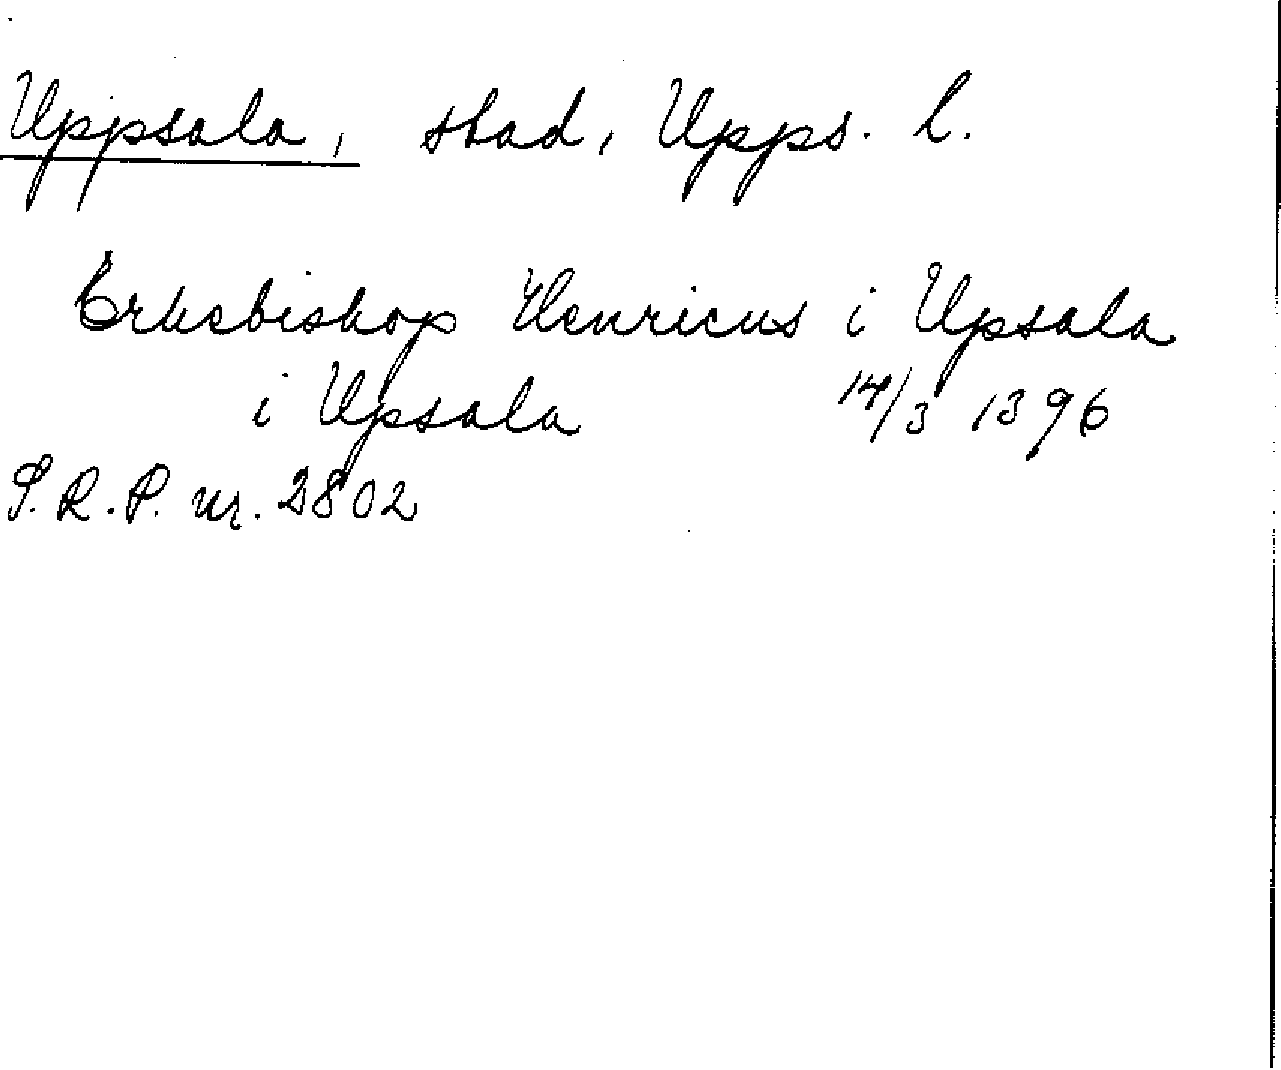 Uppsala, stad, Upps. l.
Erkebiskop Henricus i Upsala
i Upsala 14/3 1396
S.R.P. nr. 2802